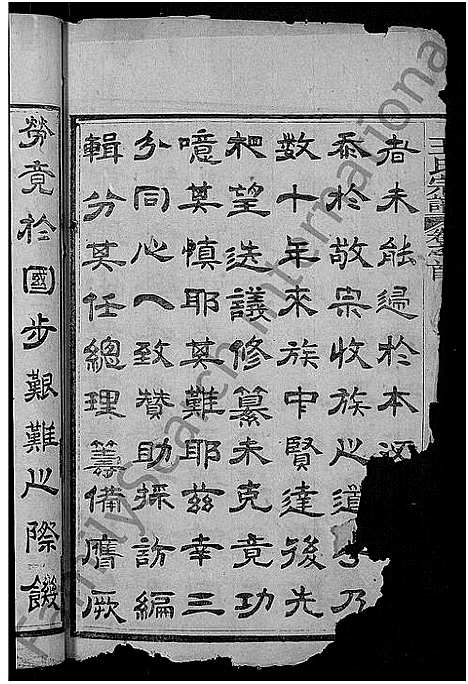 王氏宗譜 卷之首
者未能於本
忝於敬宗收族之道乃
數十年來族中賢達後先
望迭議修纂未克竟功
噫其慎耶其難耶茲幸三
分同心一致贊助採訪編
輯分其任總理籌備膺厥
勞竟於國步艱難之際饑
FamilySearch International